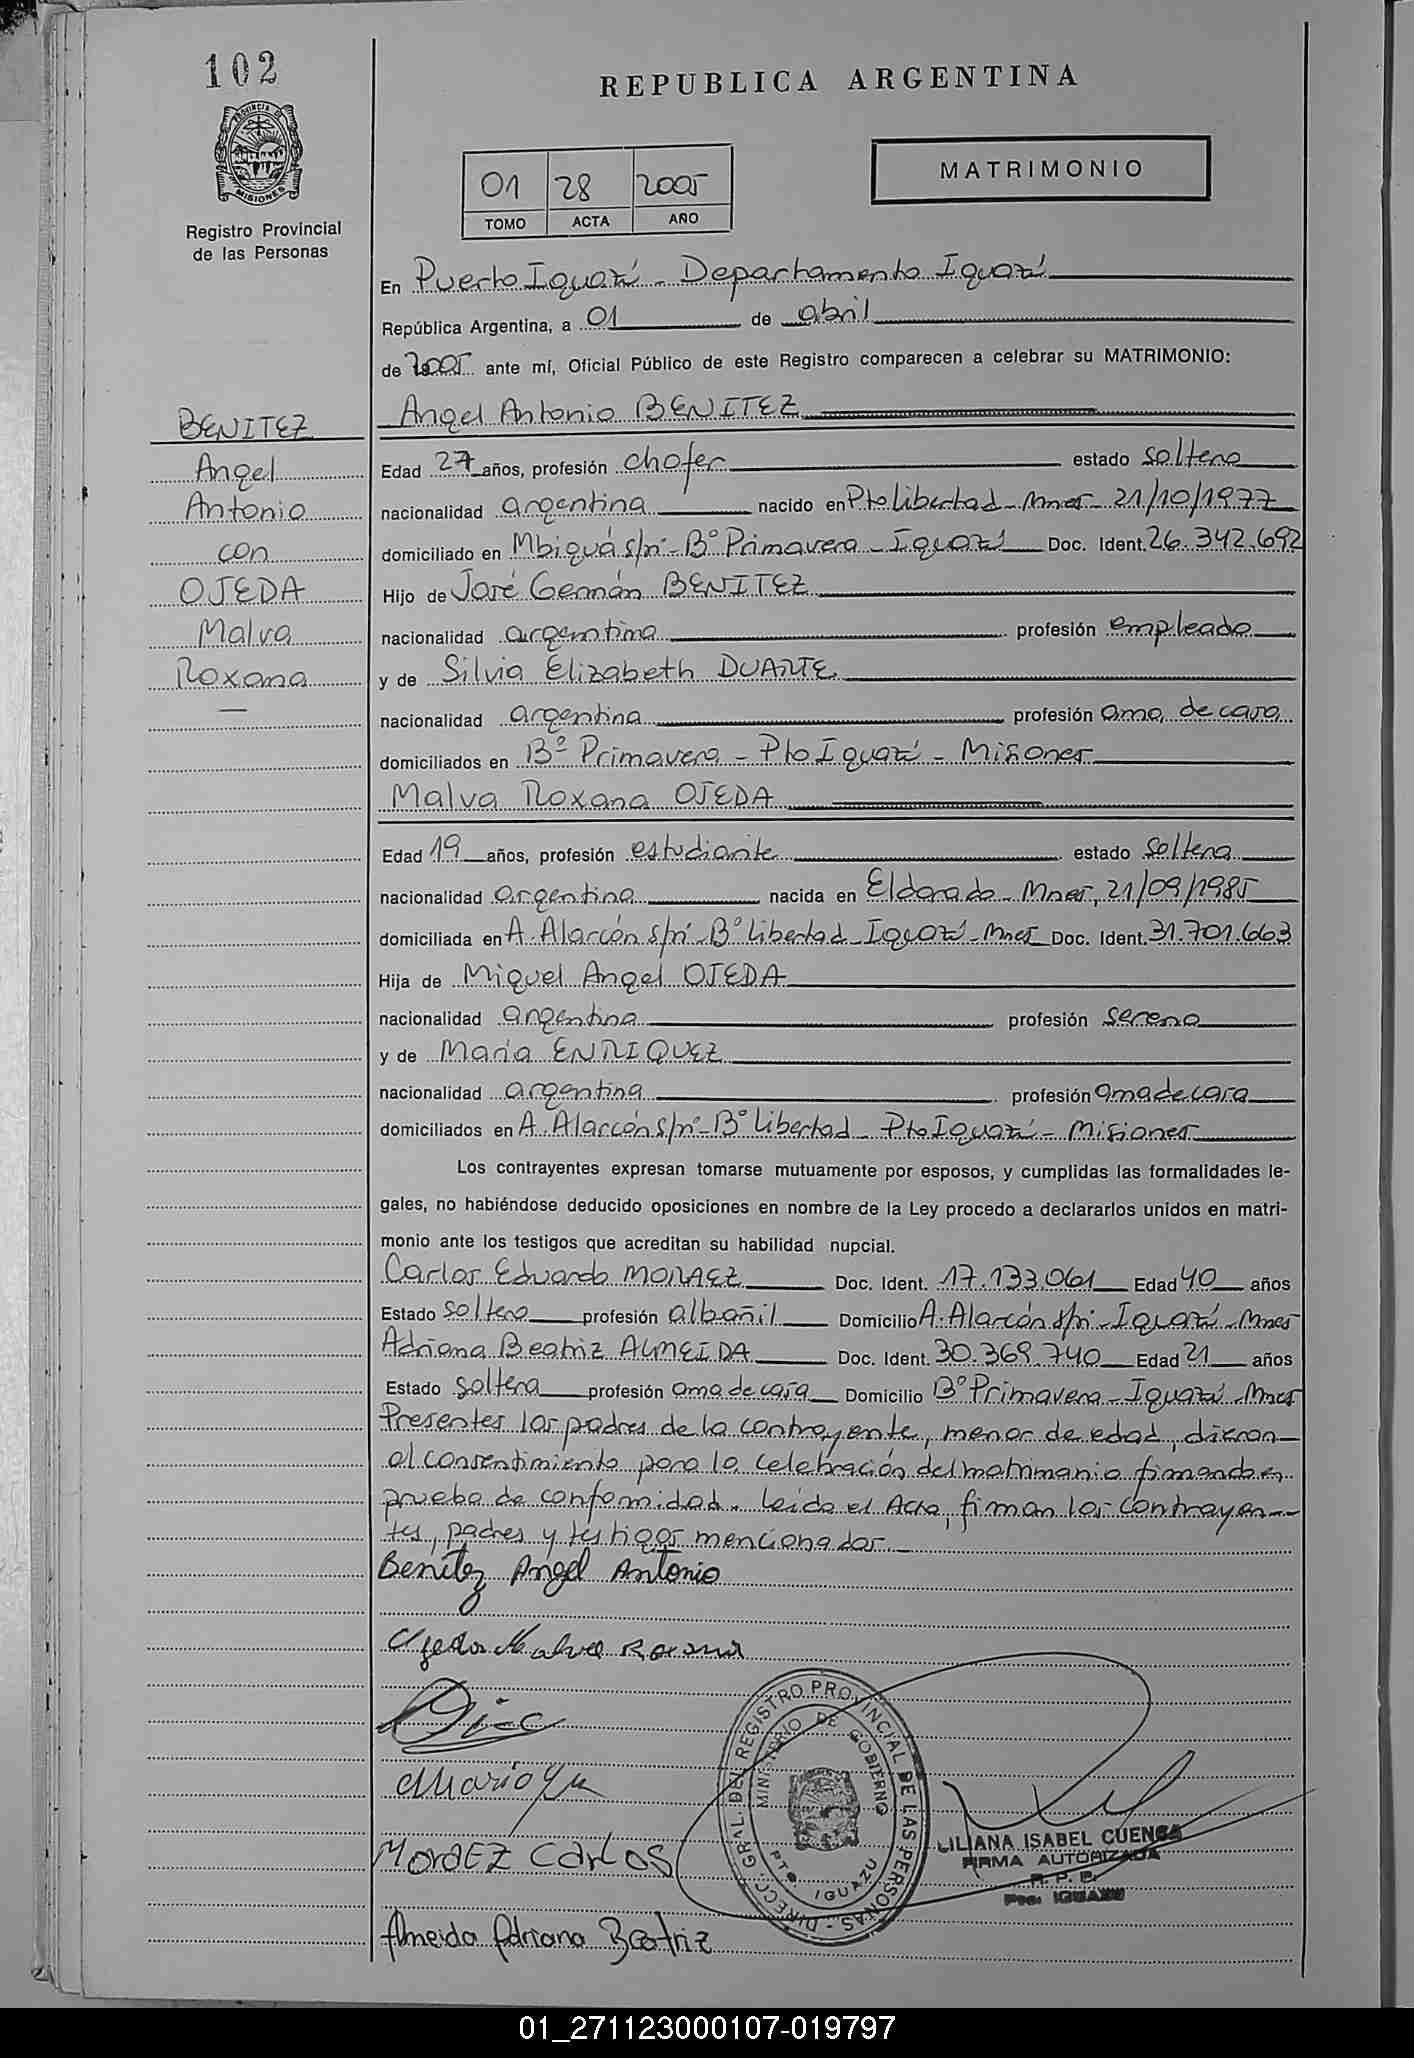 102
REPUBLICA ARGENTINA
PROVINCIA DE
MISIONES
Registro Provincial
de las Personas
01 28 2005
TOMO ACTA AÑO
MATRIMONIO
En Puerto Iguazú - Departamento Iguazú
República Argentina, a 01 de abril
de 2005 ante mí, Oficial Público de este Registro comparecen a celebrar su MATRIMONIO:
BENITEZ
Angel
Antonio
con
OJEDA
Malva
Roxana
Angel Antonio BENITEZ
Edad 27 años, profesión chofer estado soltero
nacionalidad argentina nacido en Pto Libertad - Mnes - 21/10/1977
domiciliado en Mbiguá s/nº - Bº Primavera - Iguazú Doc. Ident. 26.342.692
Hijo de José Germán BENITEZ
nacionalidad argentina profesión empleado
y de Silvia Elizabeth DUARTE
nacionalidad argentina profesión ama de casa
domiciliados en Bº Primavera - Pto Iguazú - Misiones
Malva Roxana OJEDA
Edad 19 años, profesión estudiante estado soltera
nacionalidad argentina nacida en Eldorado - Mnes, 21/09/1985
domiciliada en A. Alarcón s/nº - Bº Libertad - Iguazú - Mnes Doc. Ident. 31.701.663
Hija de Miguel Angel OJEDA
nacionalidad argentina profesión sereno
y de María ENRIQUEZ
nacionalidad argentina profesión ama de casa
domiciliados en A. Alarcón s/nº - Bº Libertad - Pto Iguazú - Misiones
Los contrayentes expresan tomarse mutuamente por esposos, y cumplidas las formalidades le-
gales, no habiéndose deducido oposiciones en nombre de la Ley procedo a declararlos unidos en matri-
monio ante los testigos que acreditan su habilidad nupcial.
Carlos Eduardo MORAEZ Doc. Ident. 17.133.061 Edad 40 años
Estado soltero profesión albañil Domicilio A. Alarcón s/nº - Iguazú - Mnes
Adriana Beatriz ALMEIDA Doc. Ident. 30.369.740 Edad 21 años
Estado soltera profesión ama de casa Domicilio Bº Primavera - Iguazú - Mnes
Presentes los padres de la contrayente, menor de edad, dieron
el consentimiento para la celebración del matrimonio firmando en
prueba de conformidad. Leída el Acta, firman los contrayen-
tes, padres y testigos mencionados.
Benitez Angel Antonio
Ojeda Malva Roxana
MoraEZ Carlos
Almeida Adriana Beatriz
DIRECC. GRAL. DEL REGISTRO PROVINCIAL DE LAS PERSONAS -
MINISTERIO DE GOBIERNO
PTO. IGUAZU
LILIANA ISABEL CUENCA
FIRMA AUTORIZADA
R. P. P.
Pto. IGUAZU
01_271123000107-019797